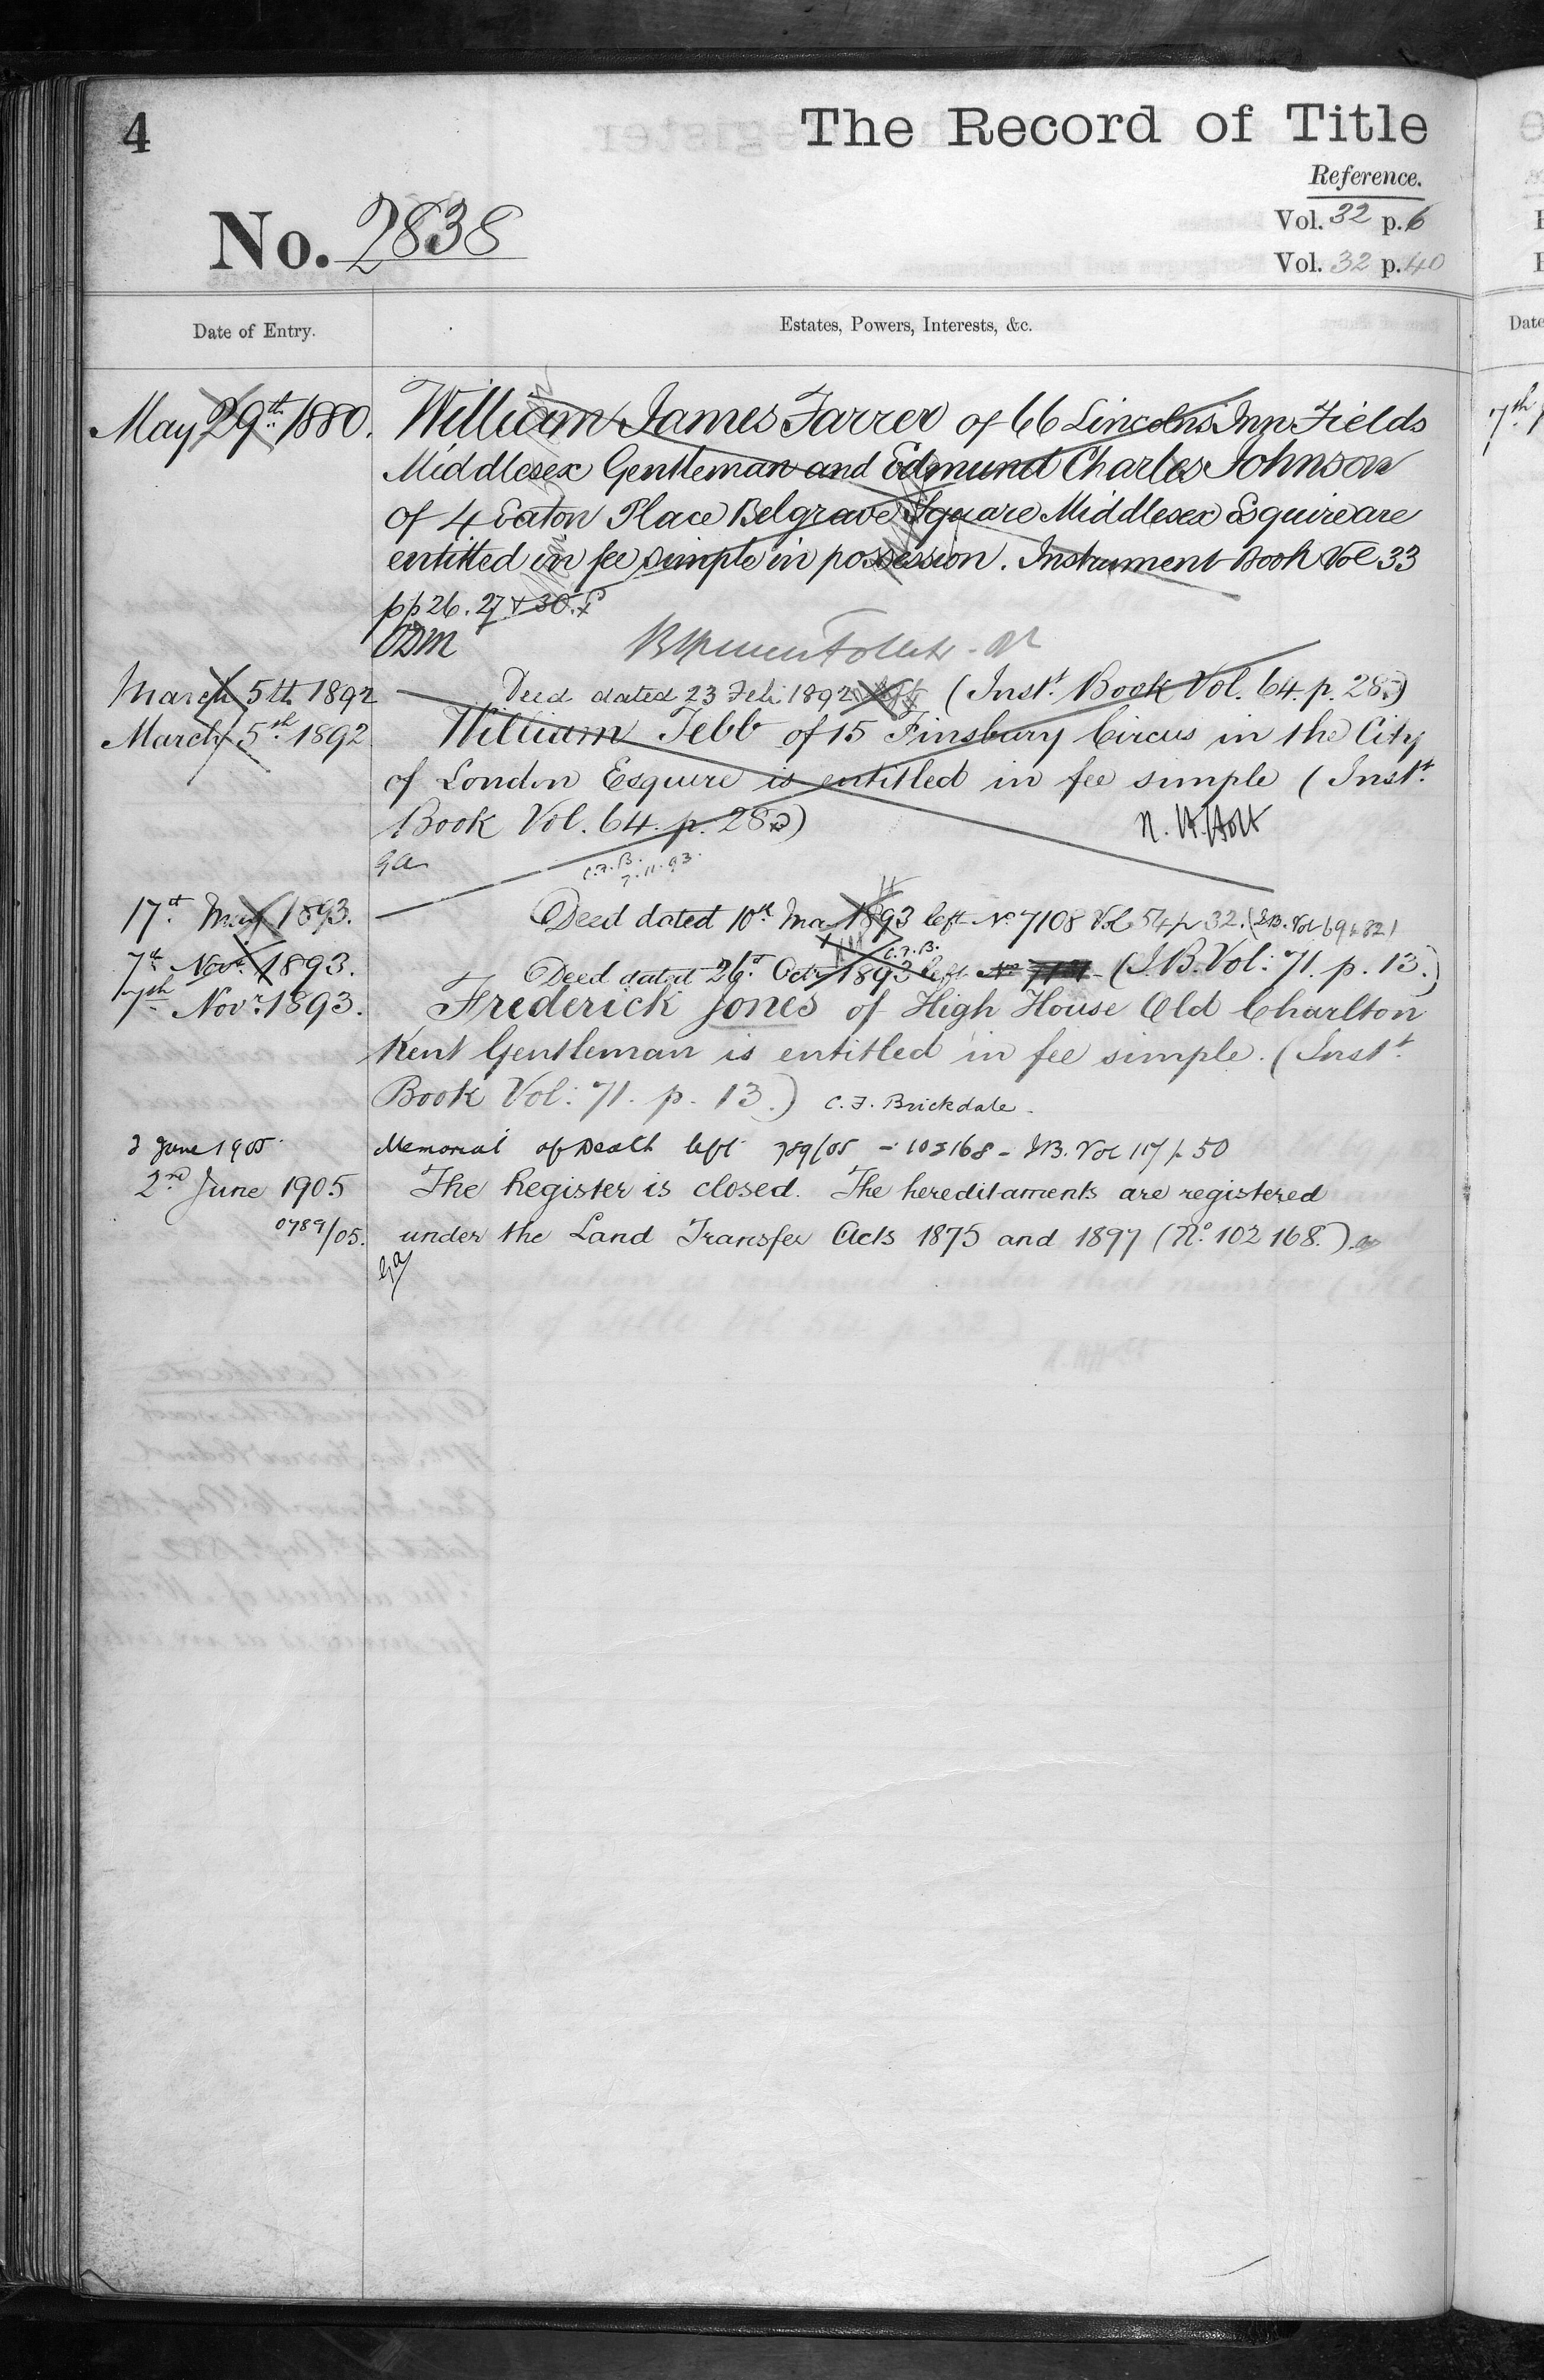 4
The Record of Title
Reference.
No. 2838
Vol. 32 p. 6
Vol. 32 p. 40
Date of Entry.
Estates, Powers, Interests, &c.
Date
May 29th 1880. William James Farrer of 66 Lincolns Inn Fields
Middlesex Gentleman and Edmund Charles Johnson
of 4 Eaton Place Belgrave Square Middlesex Esquire are
entitled in fee simple in possession. Instrument Book Vol 33
pp 26. 27 & 30.
March 5th 1892 Deed dated 23 Feb. 1892 (Inst. Book Vol. 64. p. 28.)
March 5th 1892 William Tebb of 15 Finsbury Circus in the City
of London Esquire is entitled in fee simple (Instt.
Book Vol. 64. p. 28)
N. H. Holt
ga
C.F.B.
7.11.93.
17th May 1893. Deed dated 10th May 1893 left No. 7108 Vol 54 p 32. (I.B. Vol 69 p. 82)
C.F.B.
7th Novr. 1893. Deed dated 26th Octr. 1893 left No (I.B. Vol: 71. p. 13.)
7th Novr. 1893. Frederick Jones of High House Old Charlton
Kent Gentleman is entitled in fee simple. (Instt.
Book Vol: 71. p. 13.) C. F. Brickdale.
2 June 1905 Memorial of Death left 789/05 - 102168 - I.B. Vol 117 p. 50
2nd June 1905 The Register is closed. The hereditaments are registered
0789/05. under the Land Transfer Acts 1875 and 1897 (No. 102 168.)
ga